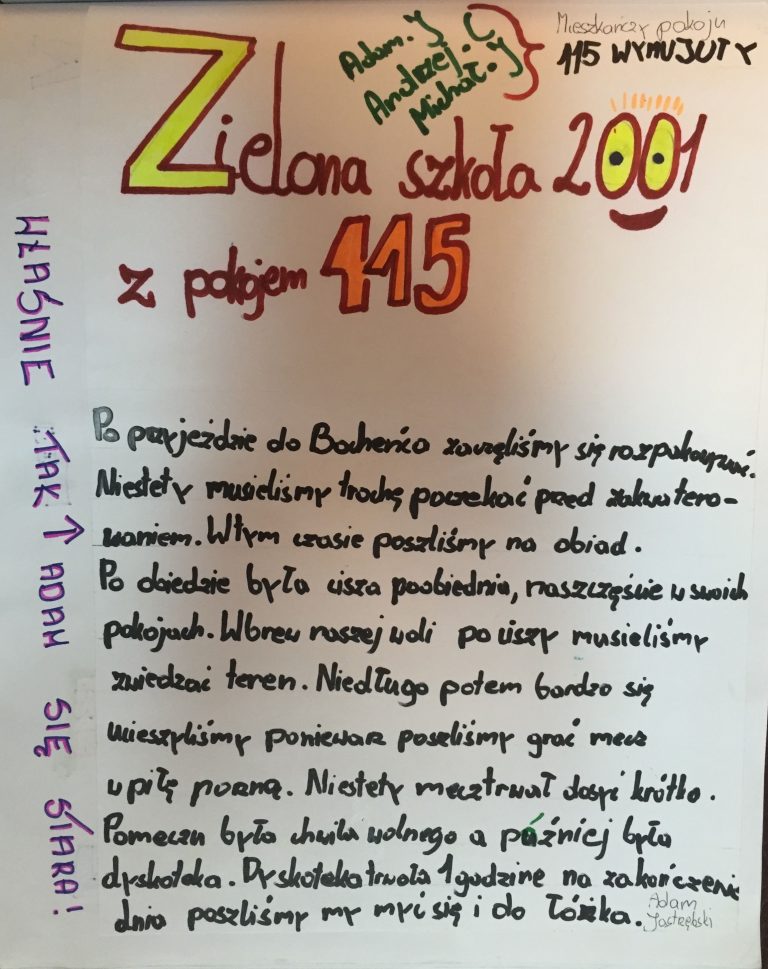 Adam.J
Andrzej.C
Michał.J
Mieszkańczy pokoju
115 WYMUJUTY
Zielona szkoła 2001
z pokojem 115
WŁAŚNIE TAK ↑ ADAM SIĘ SIARA!
Po przyjeździe do Bocheńca zaczęliśmy się rozpakowywać.
Niestety musieliśmy trochę poczekać przed zakwatero-
waniem. W tym czasie poszliśmy na obiad.
Po obiedzie była cisza poobiednia, naszczęście w swoich
pokojach. Wbrew naszej woli po ciszy musieliśmy
zwiedzać teren. Niedługo potem bardzo się
ucieszyliśmy poniewarz poszliśmy grać mecz
w piłę nożną. Niestety mecz trwał dosyć krótko.
Pomeczu była chwila wolnego a później była
dyskoteka. Dyskoteka trwała 1 godzinę na zakończenie
dnia poszliśmy my myć się i do łóżka.
Adam
Jastrzębski